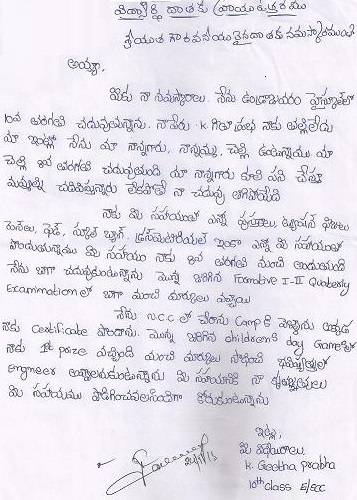 విద్యార్థి దాతకు వ్రాయు ఉత్తరము
శ్రీయుత గౌరవనీయులైన దాతకు నమస్కారములు
అయ్యా,
మీకు నా నమస్కారాలు. నేను ఉండ్రాజవరం హైస్కూల్లో
10వ తరగతి చదువుతున్నాను. నాపేరు. K గీతా ప్రభ నాకు తల్లి లేదు
మా ఇంట్లో నేను మా నాన్నగారు, నాన్నమ్మ, చెల్లి ఉంటున్నాము మా
చెల్లి 8వ తరగతి చదువుతుంది మా నాన్నగారు కూలి పని చేస్తూ
మమ్మల్ని చదివిస్తున్నారు లేకపోతే నా చదువు ఆగిపోయేది
నాకు మీ సహాయంతో ఎన్నో పుస్తకాలు, ట్యూషన్ ఫీజులు
పెన్‌లు, ప్యాడ్, స్కూల్ బ్యాగ్. డ్రస్‌మెటీరియల్ ఇంకా ఎన్నో మీ సహాయంతో
పొందుతున్నాము మీ సహాయం నాకు 8వ తరగతి నుంచి అందుతుంది
నేను బాగా చదువుకుంటున్నాను మొన్న జరిగిన Formative I-II Quaterly
Examination లో బాగా మంచి మార్కులు వచ్చాయి
నేను N.C.C లో చేరాను Camp కి వెళ్ళాను అక్కడ
నాకు Certificate పొందాను. మొన్న జరిగిన children's day Games లో
నాకు 1st prize వచ్చింది మంచి మార్కులు సాధించి భవిష్యత్తులో
engineer అవ్వాలనుకుంటున్నాను మీ సహాయానికి నా కృతజ్ఞతలు
మీ సహాయము పొడిగించవలసిందిగా కోరుకుంటున్నాను
ఇట్లు,
మీ విధేయురాలు.
K. Geetha prabha
10th class E/sec